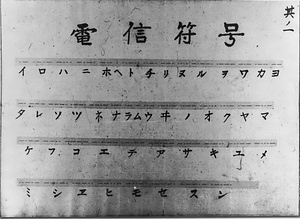 其ノ一
電信符号
イロハニホヘトチリヌルヲワカヨ
タレソツネナラムウヰノオクヤマ
ケフコエテアサキユメ
ミシヱヒモセスン